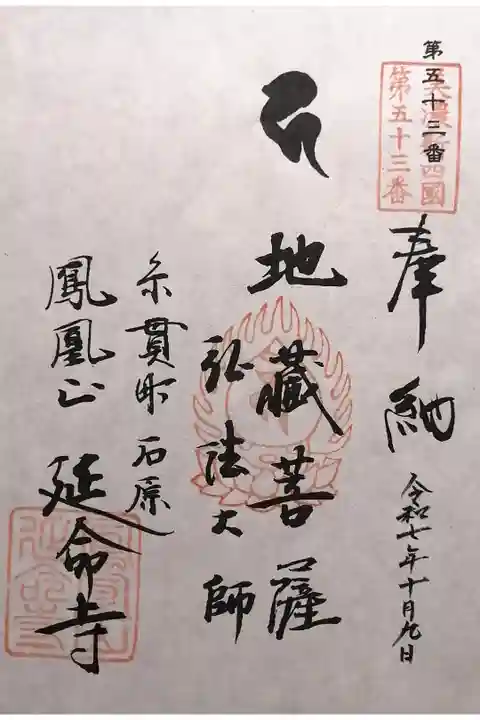 第五十三番
美濃新四國
第五十三番
奉納
令和七年十月九日
地藏菩薩
弘法大師
糸貫町石原
鳳凰山延命寺